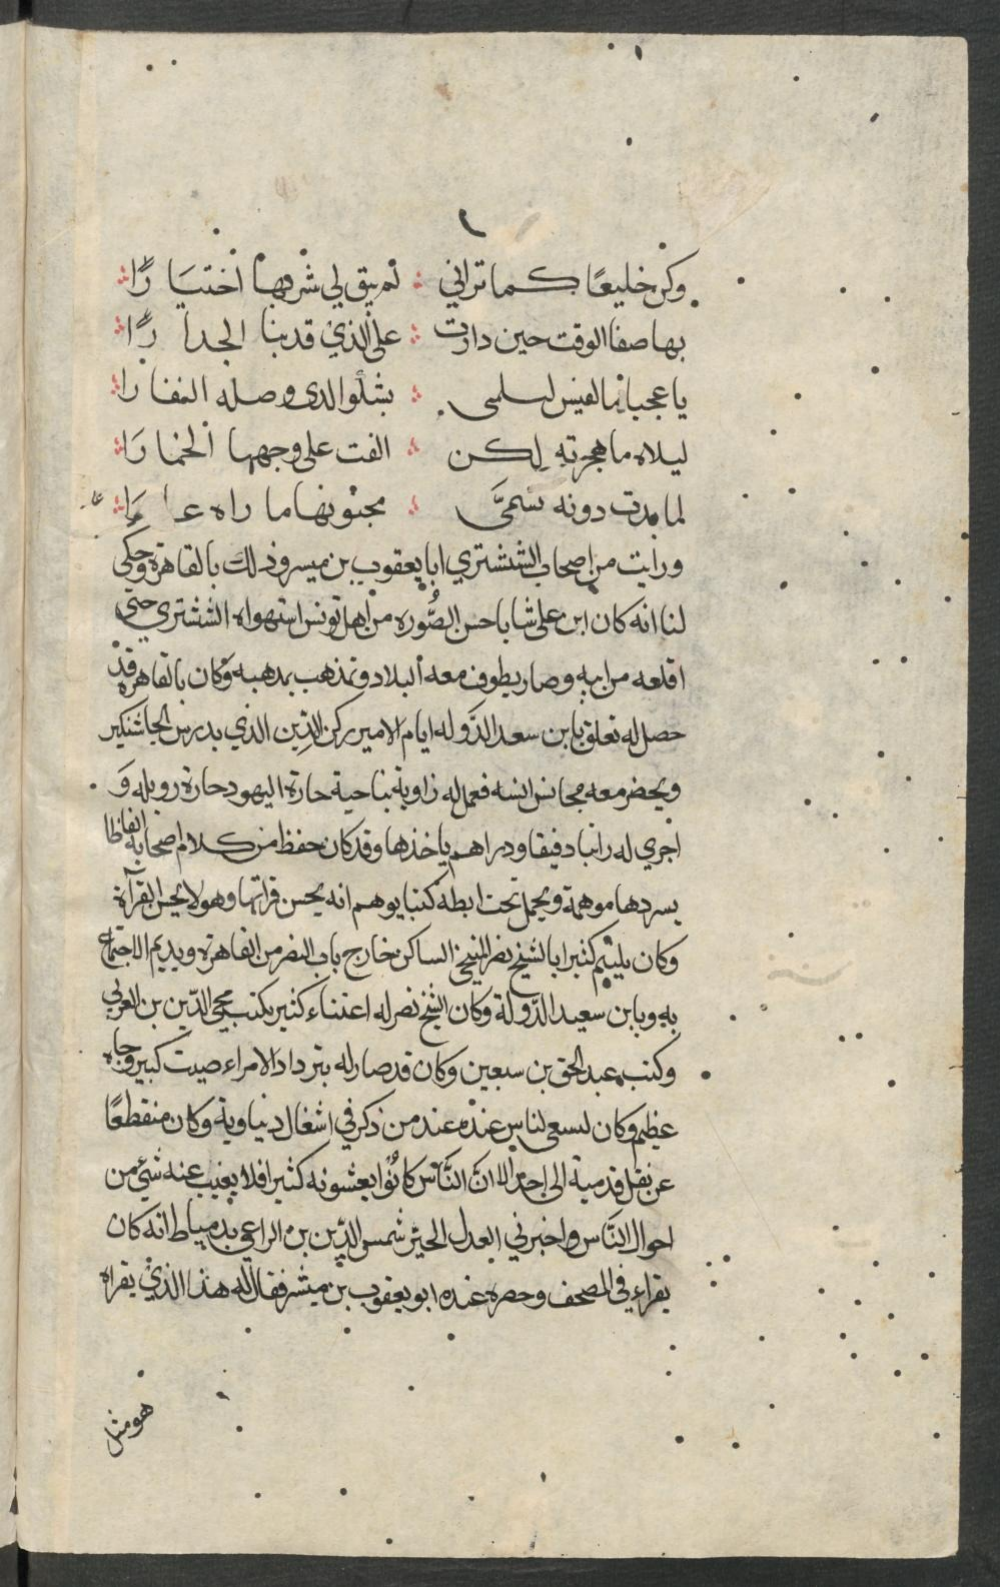 وكن خليعًا كما تراني لم يبق لي شربها اختيارًا
بها صفا الوقت حين دارت على الذي قد بنا الجدارًا
يا عجبا لسلمى وصله النفارا
ليلاه ما هجرته لكن القت على وجهها الخمارَا
لما بدت دونه تسمىَّ مجنونها ما راه عارَا
ورايت من اصحاب الششتري ابا يعقوب بن مبسر وذلك بالقاهرة وحكى
لنا انه كان ابن على شابا حسن الصُّوره من اهل تونس استهواه الششتري حتى
اقلعه من ابيه وصار يطوف معه البلاد وتمذهب بمذهبه وكان بالقاهره قد
حصل له تعلق بابن سعد الدوله ايام الامير ركن الدين الذي بيبرس الجاشنكير
ويحضر معه مجالس انسه فعمل له زاوية بناحية حارة اليهود حارة زويله وَ
اجري له راتبا دقيقا ودراهم ياخذها وقد كان حفظ من كلام اصحابه الفاظا
يسردها موهمة ويحمل تحت ابطه كتبا يوهم انه يحسن قراتها وهو لا يحسن القرآة
وكان كثيرا بالشيخ نصر المنبجي الساكن خارج باب النصر من القاهرة ويديم الاجتماع
به وبابن سعيد الدولة وكان الشيخ نصر له اعتناء كثير بكتب محي الدين بن العربي
وكتب عبد الحق بن سبعين وكان قد صار له بترداد الامراء صيت كبير وجاه
عظيم وكان لسعى لناس عنده عند من ذكر في اشغال دنياوية وكان منقطعًا
عن نقل قدميه الى احد الا انَّ النَّاس كانوا يغشونه كثيرا فلا يغيب عنه شيء من
احوال الناس واخبرني العدل الخير شمس الدين بن الراعي بدمياط انه كان
يقراء في المصحف وحضره عنده ابو يعقوب بن مبشر فقال له هذا الذي يقراه
هو مثل